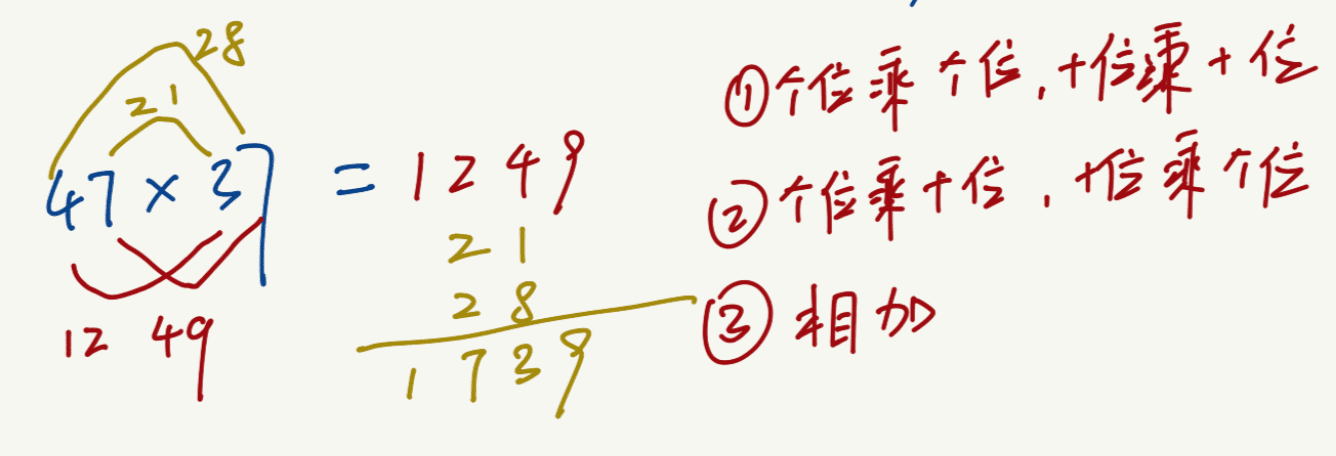 28
21
47×37 = 1249
21
28
1739
12 49
①个位乘个位，十位乘十位
②个位乘十位，十位乘个位
③相加